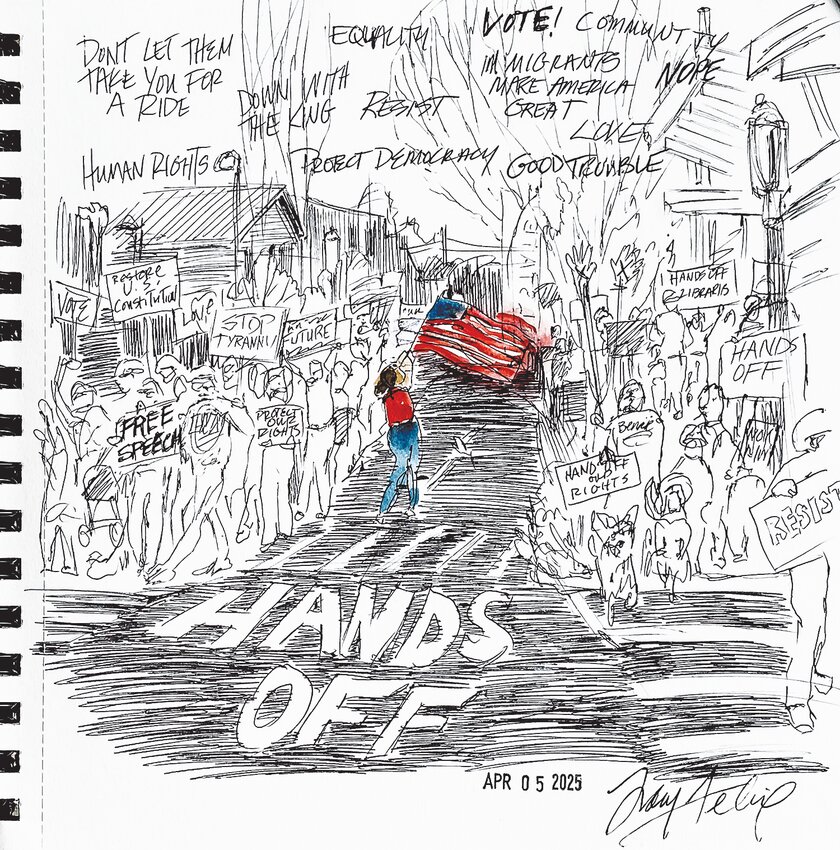 VOTE! COMMUNITY
EQUALITY
DONT LET THEM
TAKE YOU FOR
A RIDE
IMMIGRANTS
MAKE AMERICA
GREAT
NOPE
DOWN WITH
THE KING
RESIST
LOVE
HUMAN RIGHTS
PROTECT DEMOCRACY
GOOD TRUMBLE
VOTE
RESTORE
Constitution
LOVE
STOP
TYRANNY
FUTURE
HANDS OFF
LIBRARIES
HANDS
OFF
FREE
SPEECH
PROTECT
OUR
RIGHTS
Bernie
HANDS OFF
OUR
RIGHTS
RESIST
HANDS
OFF
APR 05 2025